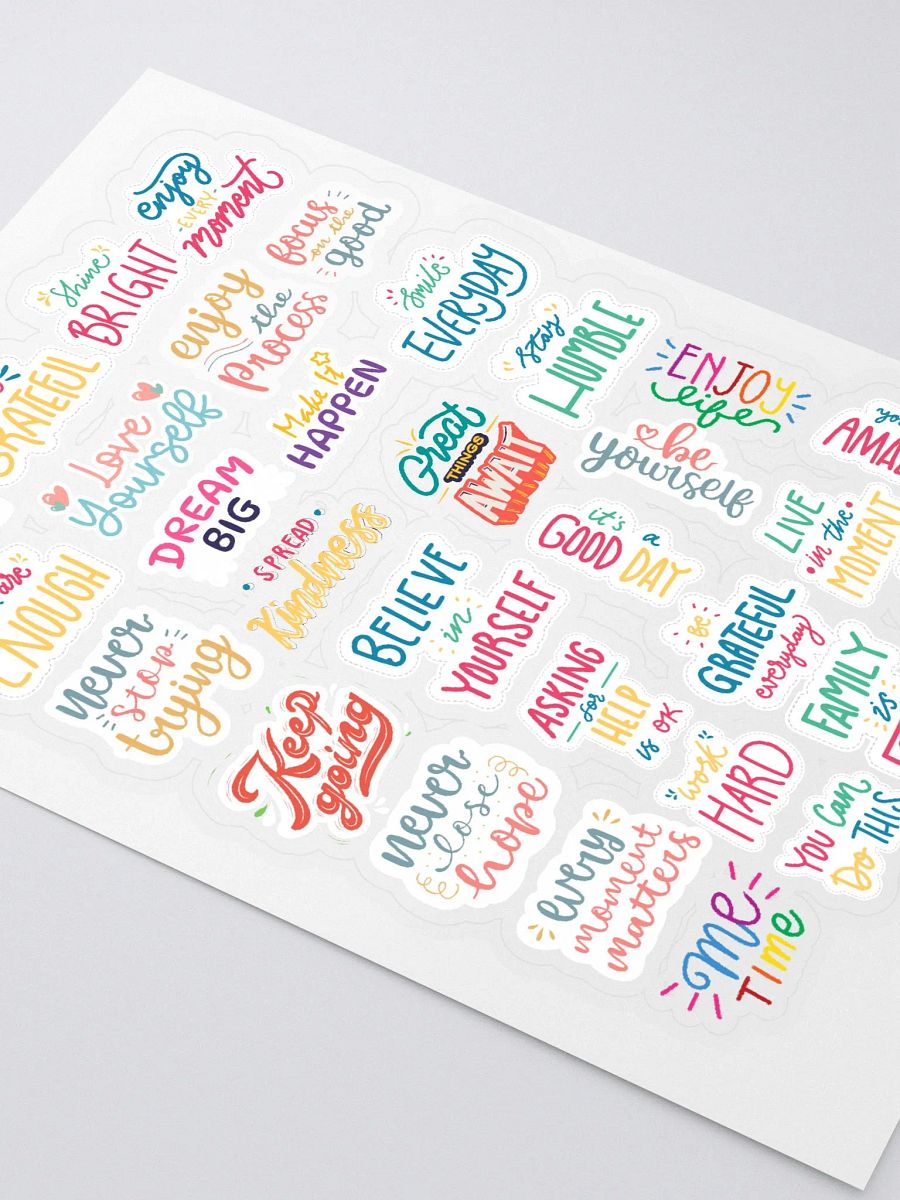 enjoy
-EVERY-
moment
focus
on the
good
Shine
BRIGHT
enjoy
the
process
Smile
EVERYDAY
Stay
HUMBLE
ENJOY
life
GRATEFUL
Love
Yourself
Make It
HAPPEN
Great
THINGS
AWAIT
be
yourself
AMA
DREAM
BIG
SPREAD
Kindness
it's
a
GOOD DAY
LIVE
in the
MOMENT
are
ENOUGH
never
stop
trying
BELIEVE
in
YOURSELF
ASKING
for
HELP
is OK
BE
GRATEFUL
everyday
FAMILY
is
Keep
going
never
lose
hope
every
moment
matters
work
HARD
YOU Can
Do THIS
Me
TIME